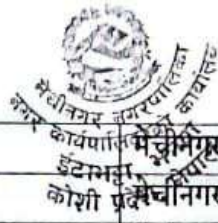 मेचीनगर नगरपालिका
नगर कार्यपालिकाको कार्यालय
इटाभट्टा
कोशी प्रदेश
मेचीनगर
मेचीनगर